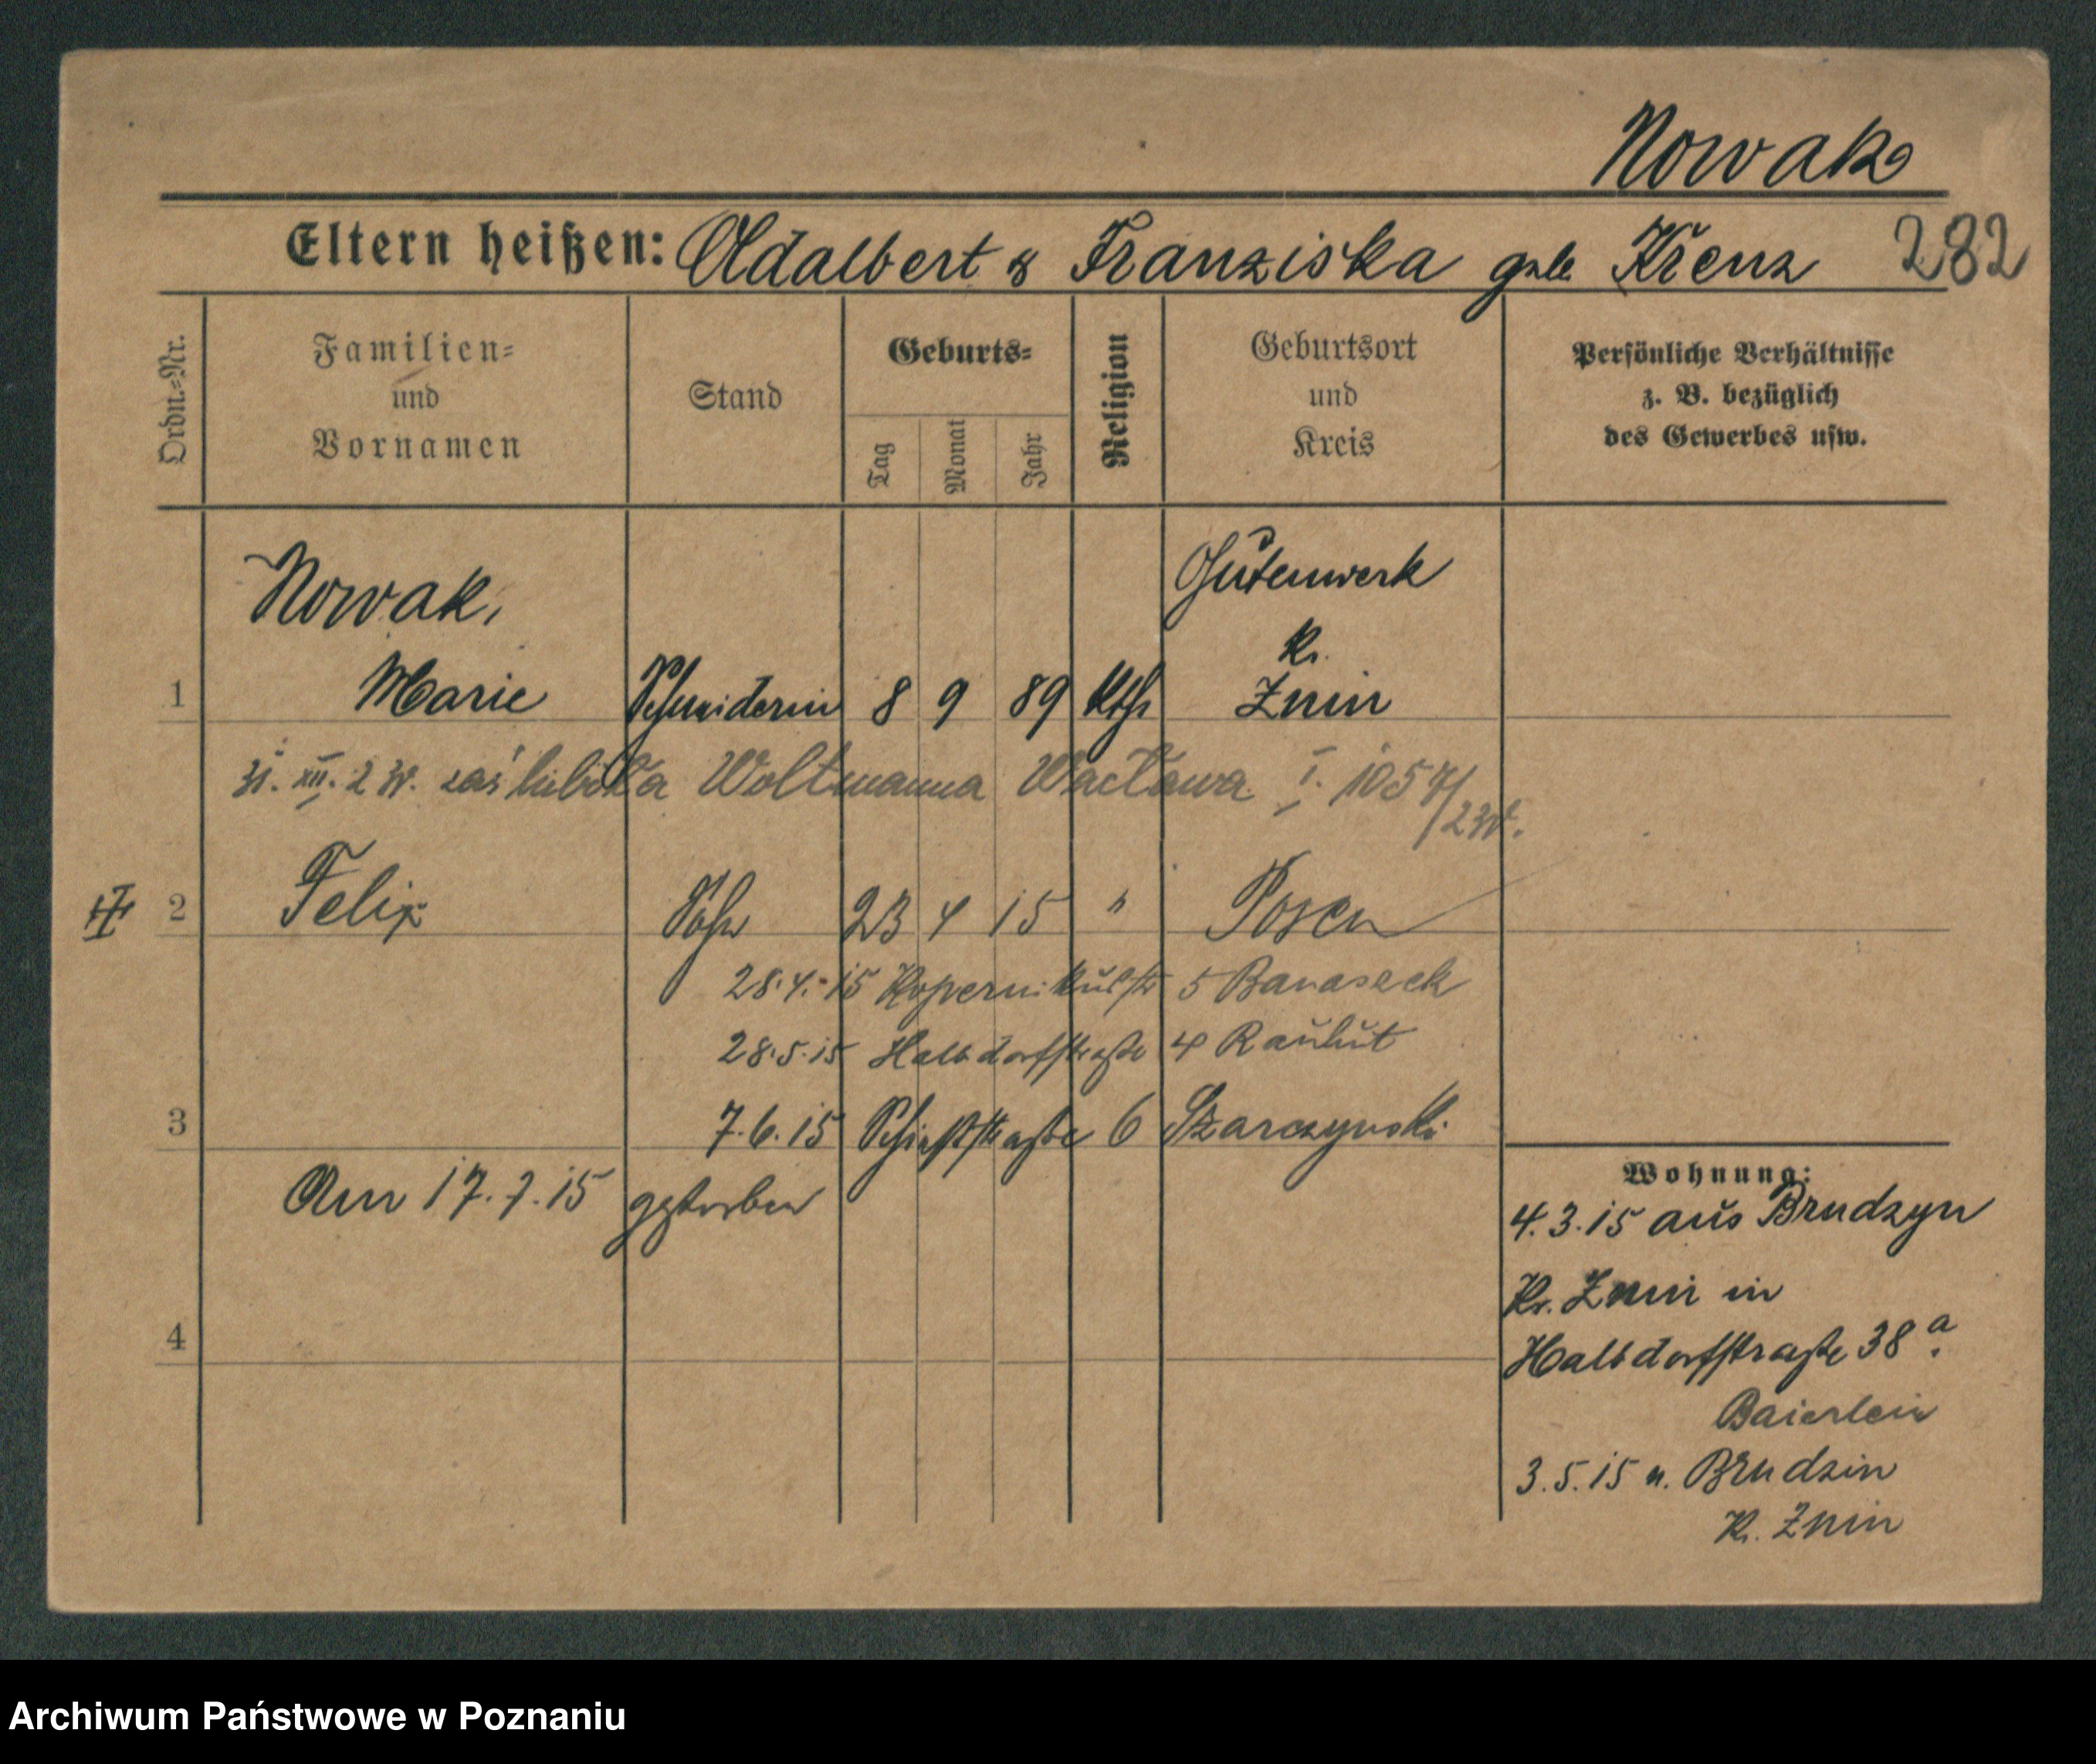 Nowak
Eltern heißen: Adalbert & Franziska geb. Krenz 282
Ordn.=Nr.
Familien= und Vornamen
Stand
Geburts=
Tag
Monat
Jahr
Religion
Geburtsort und Kreis
Persönliche Verhältnisse
z. B. bezüglich
des Gewerbes usw.
Nowak, Gutenwerk
Kr.
1 Marie Schneiderin 8 9 89 kth Znin
31. XII. 23r. zaślubiła Woltmanna Wacława I. 1057/23r.
2 Felix Sohn 23 4 15 " Posen
28.4.15 Kopernikusstr 5 Banaszek
28.5.15 Halbdorfstraße 4 Rauhut
3 7.6.15 Schießstraße 6 Szarczynski
Am 17.7.15 gestorben
4
Wohnung:
4.3.15 aus Brudzyn
Kr. Znin in
Halbdorfstraße 38a.
Baierlein
3.5.15 n. Brudzin
Kr. Znin
Archiwum Państwowe w Poznaniu